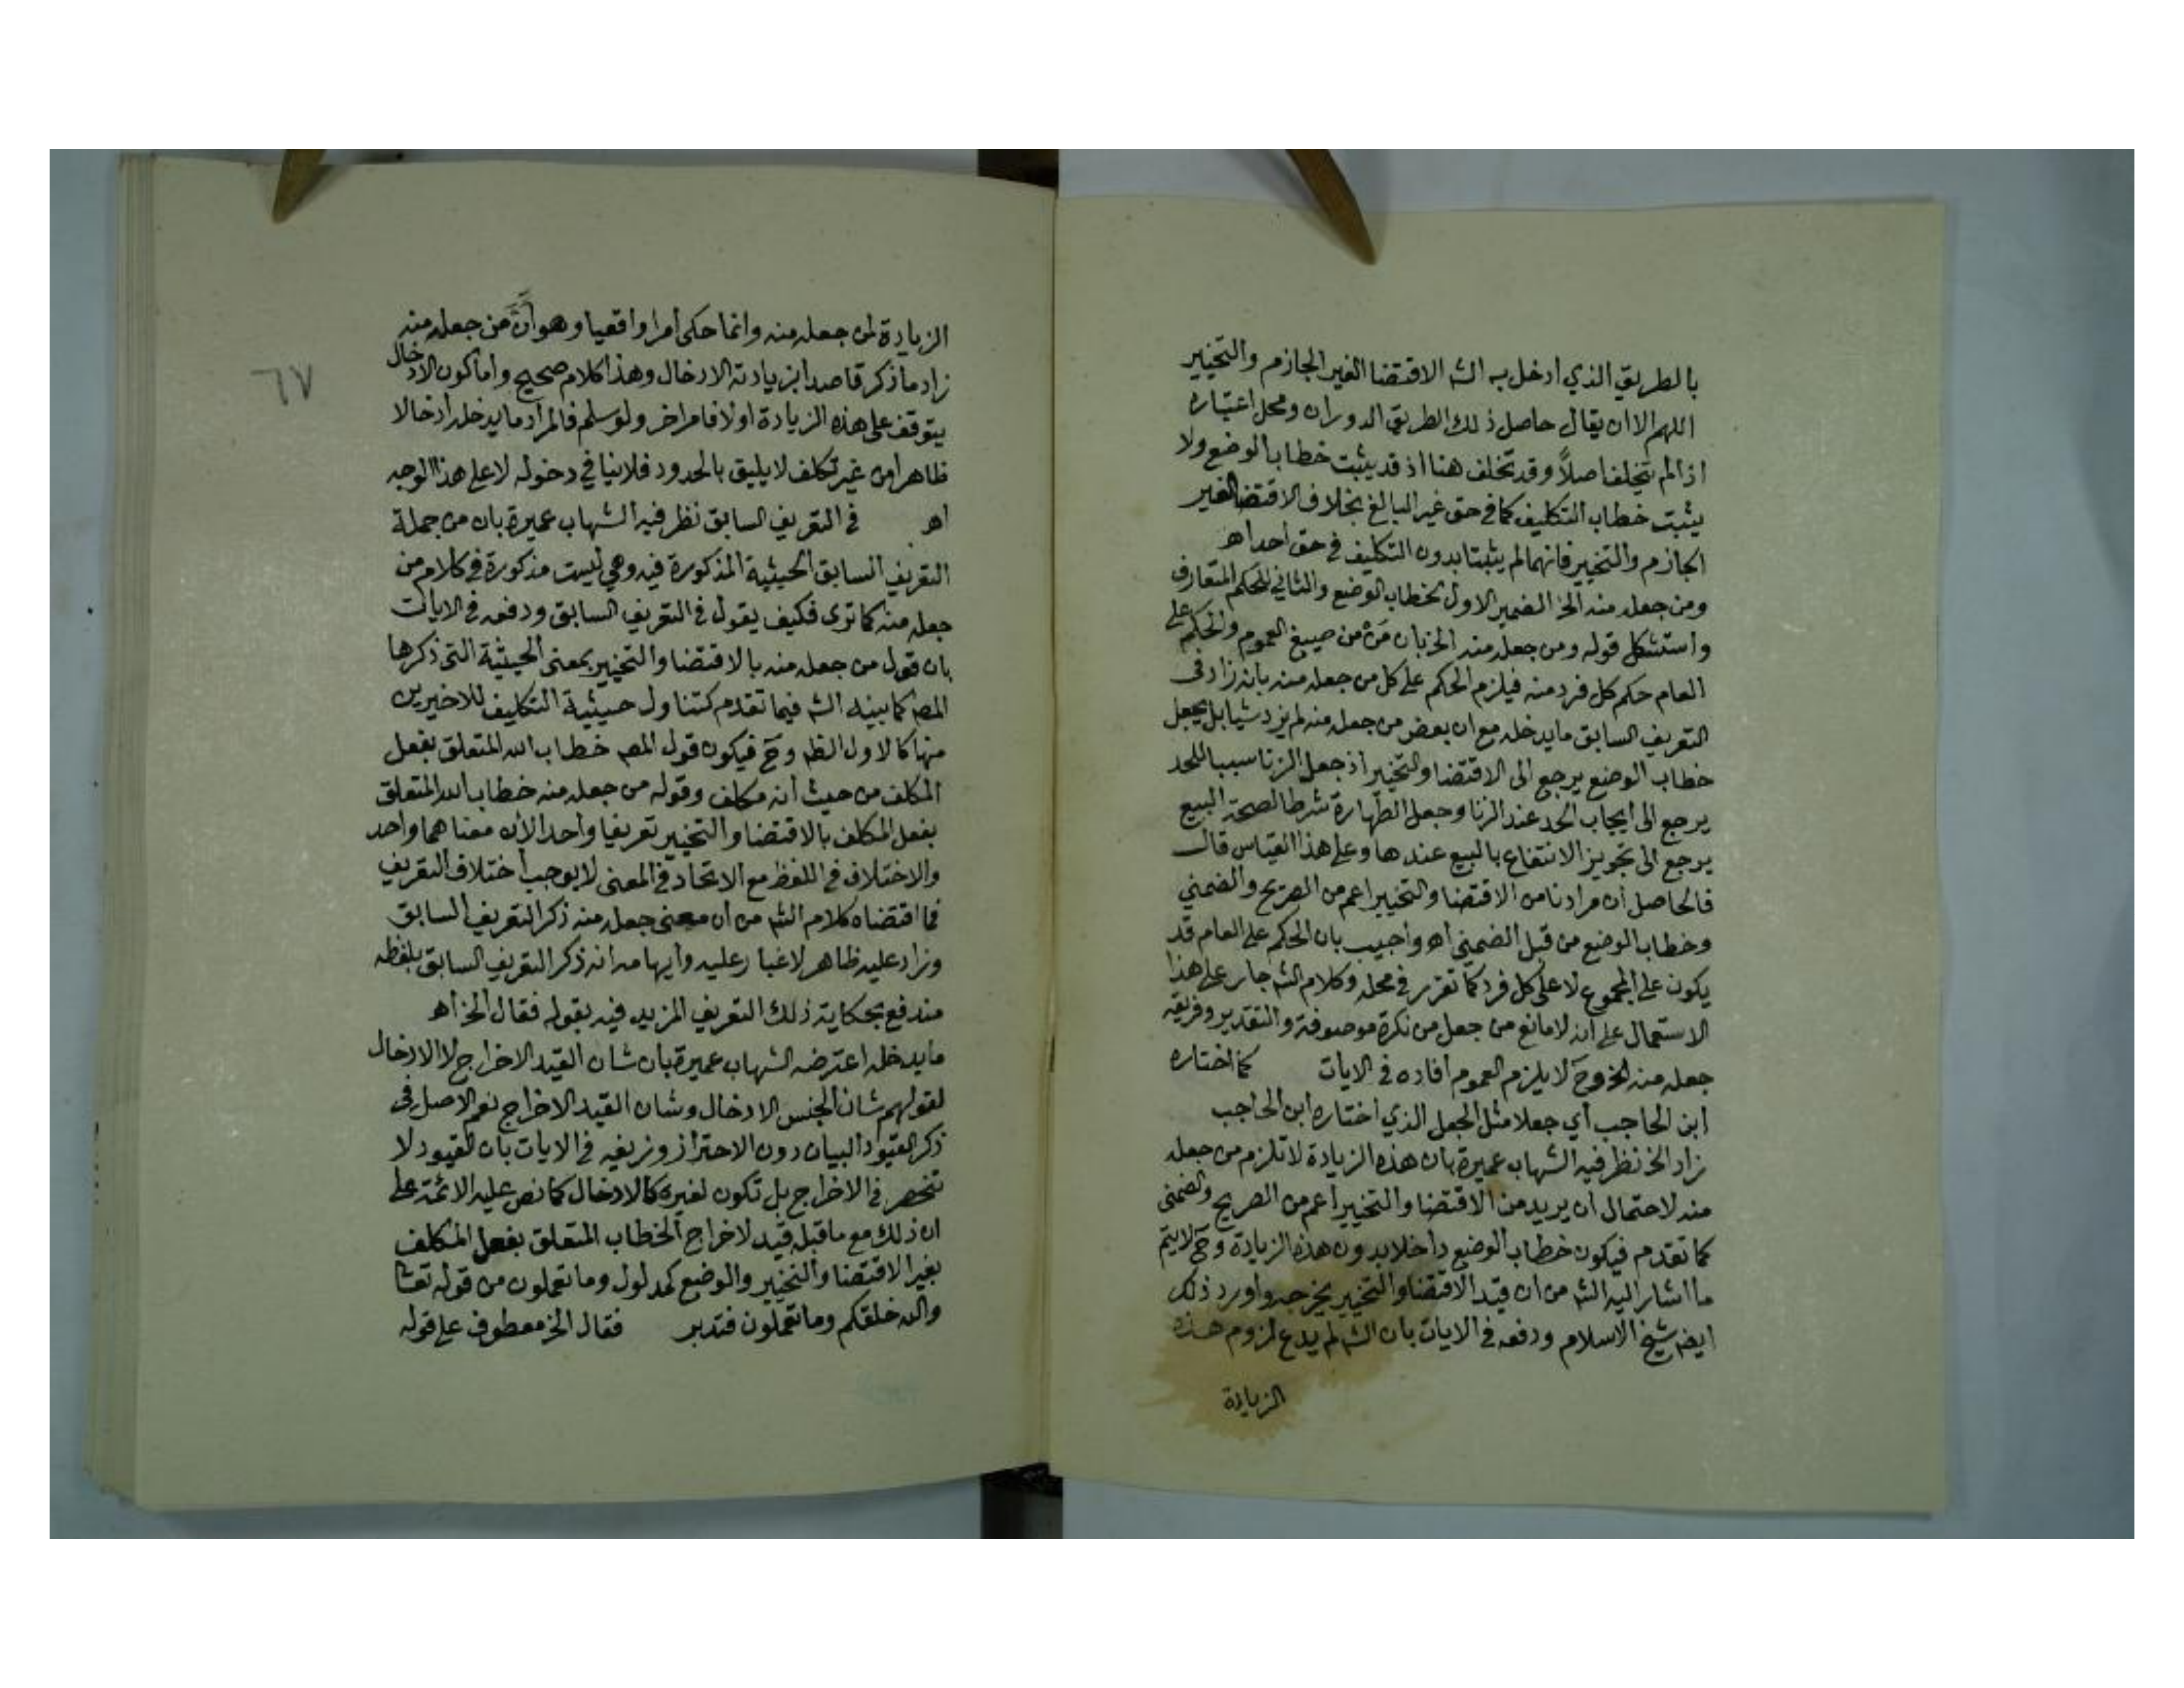 بالطريق الذي ادخل به الشه الاقتضا الغير الجازم والتخيير
اللهم الا ان يقال حاصل ذلك الطريق الدوران ومحل اعتباره
اذا لم يتخلف اصلاً وقد تخلف هنا اذ قد يثبت خطاب الوضع ولا
يثبت خطاب التكليف كما في حق غير البالغ بخلاف الاقتضا الغير
الجازم والتخيير فانهما لم يثبتا بدون التكليف في حق احد اهـ
ومن جعله منه الخ الضمير الاول لخطاب الوضع والثاني للحكم المتعارف
واستشكل قوله ومن جعله منه الخ بان مَنْ من صيغ العموم والحكم على
العام حكم كل فرد منه فيلزم الحكم على كل من جعله منه بانه زاد في
التعريف السابق ما يدخله مع ان بعض من جعله منه لم يزد شيا بل يجعل
خطاب الوضع يرجع الى الاقتضا والتخيير اذ جعل الزنا سببا للحد
يرجع الى ايجاب الحد عند الزنا وجعل الطهارة شرطا لصحة البيع
يرجع الى تجويز الانتفاع بالبيع عندها وعلى هذا القياس قال
فالحاصل ان مرادنا من الاقتضا والتخيير اعم من الصريح والضمني
وخطاب الوضع من قبل الضمني اهـ واجيب بان الحكم على العام قد
يكون على المجموع لا على كل فرد كما تقرر في محله وكلام الشه جار على هذا
الاستعمال على ان لا مانع من جعل من نكرة موصوفة والتقدير وفريق
جعله منه الخ وحَ لا يلزم العموم افاده في الايات كما اختاره
ابن الحاجب أي جعلا مثل الجعل الذي اختاره ابن الحاجب
زاد الخ نظر فيه الشهاب عميرة بان هذه الزيادة لا تلزم من جعله
منه لاحتمال ان يريد من الاقتضا والتخيير اعم من الصريح والضمني
كما تقدم فيكون خطاب الوضع داخلا بدون هذه الزيادة وحَ لا يتم
ما اشار اليه الشه من ان قيد الاقتضا والتخيير يخرجه واورد ذلك
ايضه شيخ الاسلام ودفعه في الايات بان الشه لم يدع لزوم هذه
الزيادة
الزيادة لمن جعله منه وانما حكى امرا واقعيا وهو انَّ مَن جعله منه
زاد ما ذكر قاصدا بزيادته الادخال وهذا كلام صحيح واما كون الادخال
يتوقف على هذه الزيادة اولا فامر اخر ولو سلم فالمراد ما يدخله ادخالا
ظاهرا من غير تكلف لا يليق بالحدود فلا ينافي دخوله لا على هذا الوجه
اهـ في التعريف السابق نظر فيه الشهاب عميرة بان من جملة
التعريف السابق الحيثية المذكورة فيه وهي ليست مذكورة في كلام من
جعله منه كما ترى فكيف يقول في التعريف السابق ودفعه في الايات
بان قول من جعله منه بالاقتضا والتخيير بمعنى الحيثية التي ذكرها
المصه كما بينه الشه فيما تقدم كتناول حيثية التكليف للاخيرين
منها كالاول الظه وحَ فيكون قول المصه خطاب الله المتعلق بفعل
المكلف من حيث انه مكلف وقوله من جعله منه خطاب الله المتعلق
بفعل المكلف بالاقتضا والتخيير تعريفا واحدا لان معناهما واحد
والاختلاف في اللفظ مع الاتحاد في المعنى لا يوجب اختلاف التعريف
فما اقتضاه كلام الشه من ان معنى جعله منه ذكر التعريف السابق
وزاد عليه ظاهر لا غبار عليه وايهامه انه ذكر التعريف السابق بلفظه
مندفع بحكاية ذلك التعريف المزيد فيه بقوله فقال الخ اهـ
ما يدخله اعترضه الشهاب عميرة بان شان القيد الاخراج لا الادخال
لقولهم شان الجنس الادخال وشان القيد الاخراج نعم الاصل في
ذكر القيود البيان دون الاحتراز وزيفه في الايات بان القيود لا
تنحصر في الاخراج بل تكون لغيره كالادخال كما نص عليه الائمة على
ان ذلك مع ما قبله قيد لاخراج الخطاب المتعلق بفعل المكلف
بغير الاقتضا والتخيير والوضع كمدلول وما تعملون من قوله تعا
والله خلقكم وما تعملون فتدبر فقال الخ معطوف على قوله
٦٧